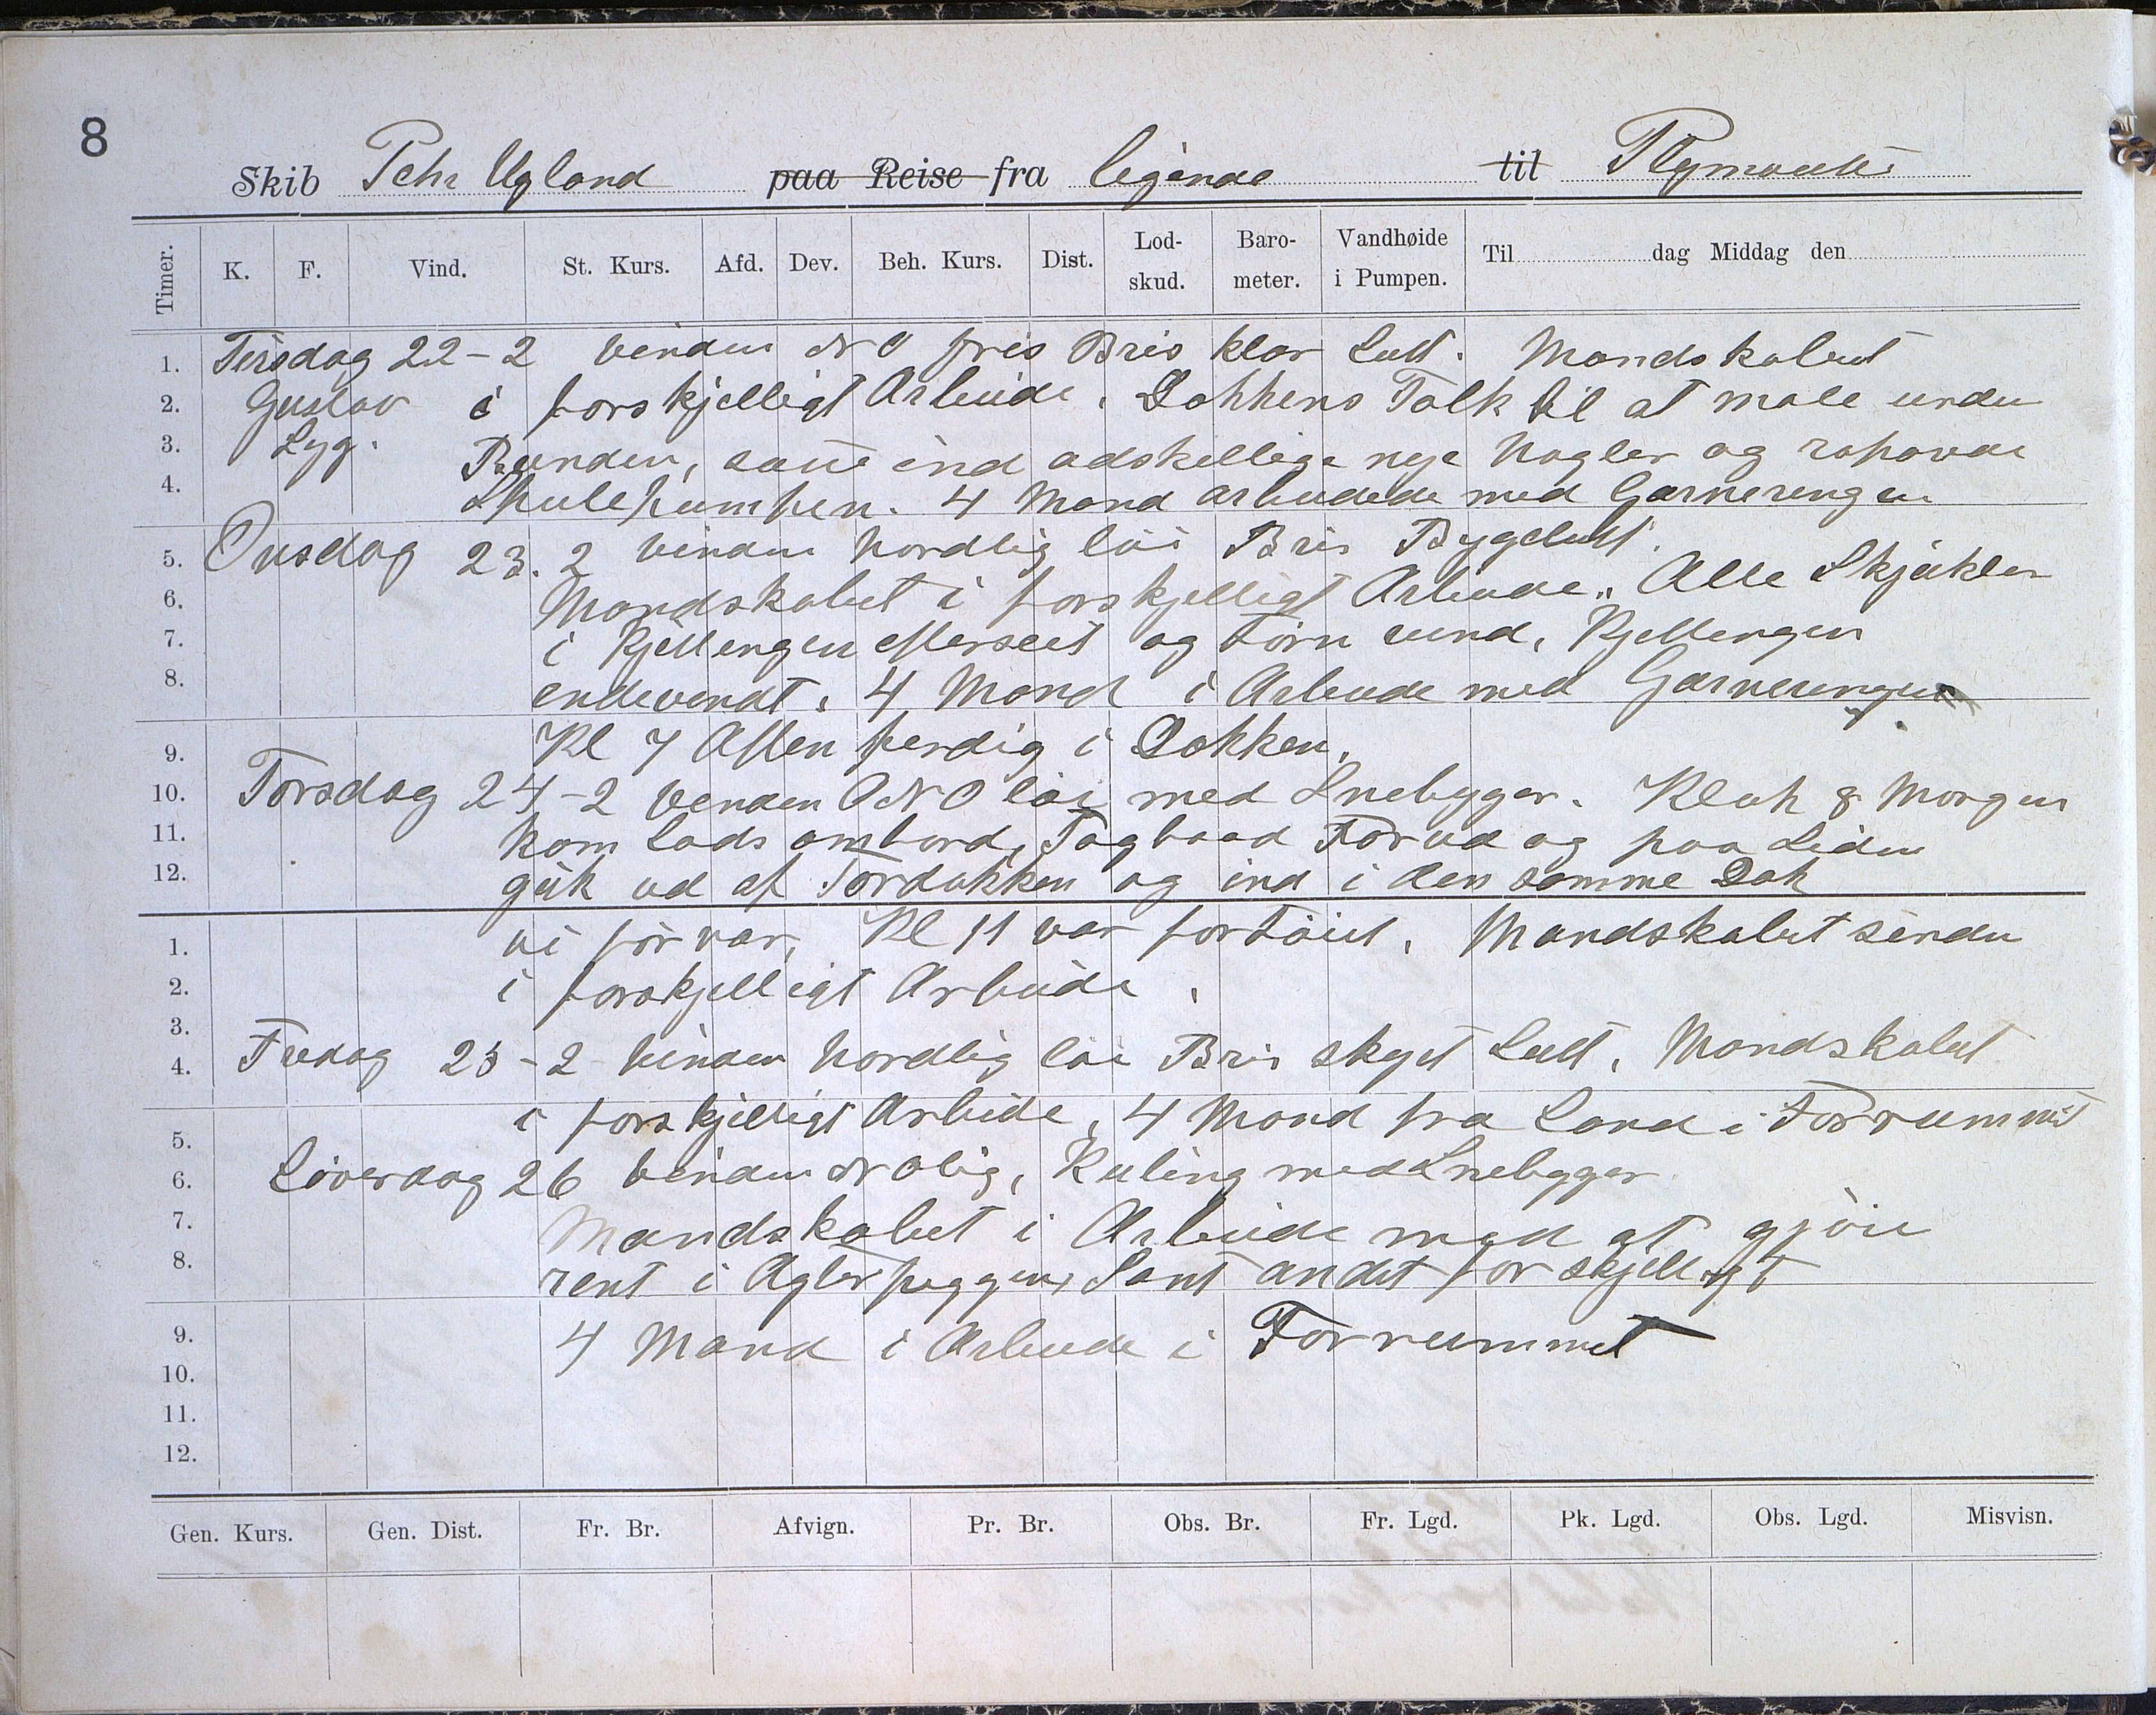 8
Skib Pehr Ugland paa Reise fra ligende til Plymouth
Timer. K. F. Vind. St. Kurs. Afd. Dev. Beh. Kurs. Dist. Lod-skud. Baro-meter. Vandhøide i Pumpen. Til dag Middag den
1. Tirsdag 22-2 Vinden NO fris Bris klar Luft. Mandskabet
2. Gustav i forskjelligt Arbeide. Dokkens Folk til at male under
3. Syg. Bunden, satte ind adskellige nye Nagler og
4. Spulepumpen. 4 Mand arbeidede med Garneringen
5. Onsdag 23.2 Vinden Nordlig löi Bris Bygeluft.
6. Mandskabet i forskjelligt Arbeide. Alle Skjäkler
7. i Kjettingen efterseet og törn rund, Kjettingen
8. endevendt. 4 Mand i Arbeide med Garneringen
9. Kl 7 Aften ferdig i Dokken.
10. Torsdag 24-2 Vinden ONO löi med Snebyger. Klok 8 Morgen
11. kom Lods ombord, Tagbaad Forud og paa Siden
12. gik ud af Tördokken og ind i den samme Dok
1. vi för var, Kl 11 var fortöiet. Mandskabet senden
2. i forskjelligt Arbeide.
3.
4. Fredag 25-2 Vinden Nordlig löi Bris skyet Luft. Mandskabet
5. i forskjelligt Arbeide, 4 Mand fra Land i Forrummet
6. Löverdag 26 Vinden NOlig, Kuling med Snebyger
7. Mandskabet i Arbeide med at gjöre
8. rent i Agterpeggen, Samt andet forskjelligt
9. 4 Mand i Arbeide i Forrummet
10.
11.
12.
Gen. Kurs. Gen. Dist. Fr. Br. Afvign. Pr. Br. Obs. Br. Fr. Lgd. Pk. Lgd. Obs. Lgd. Misvisn.